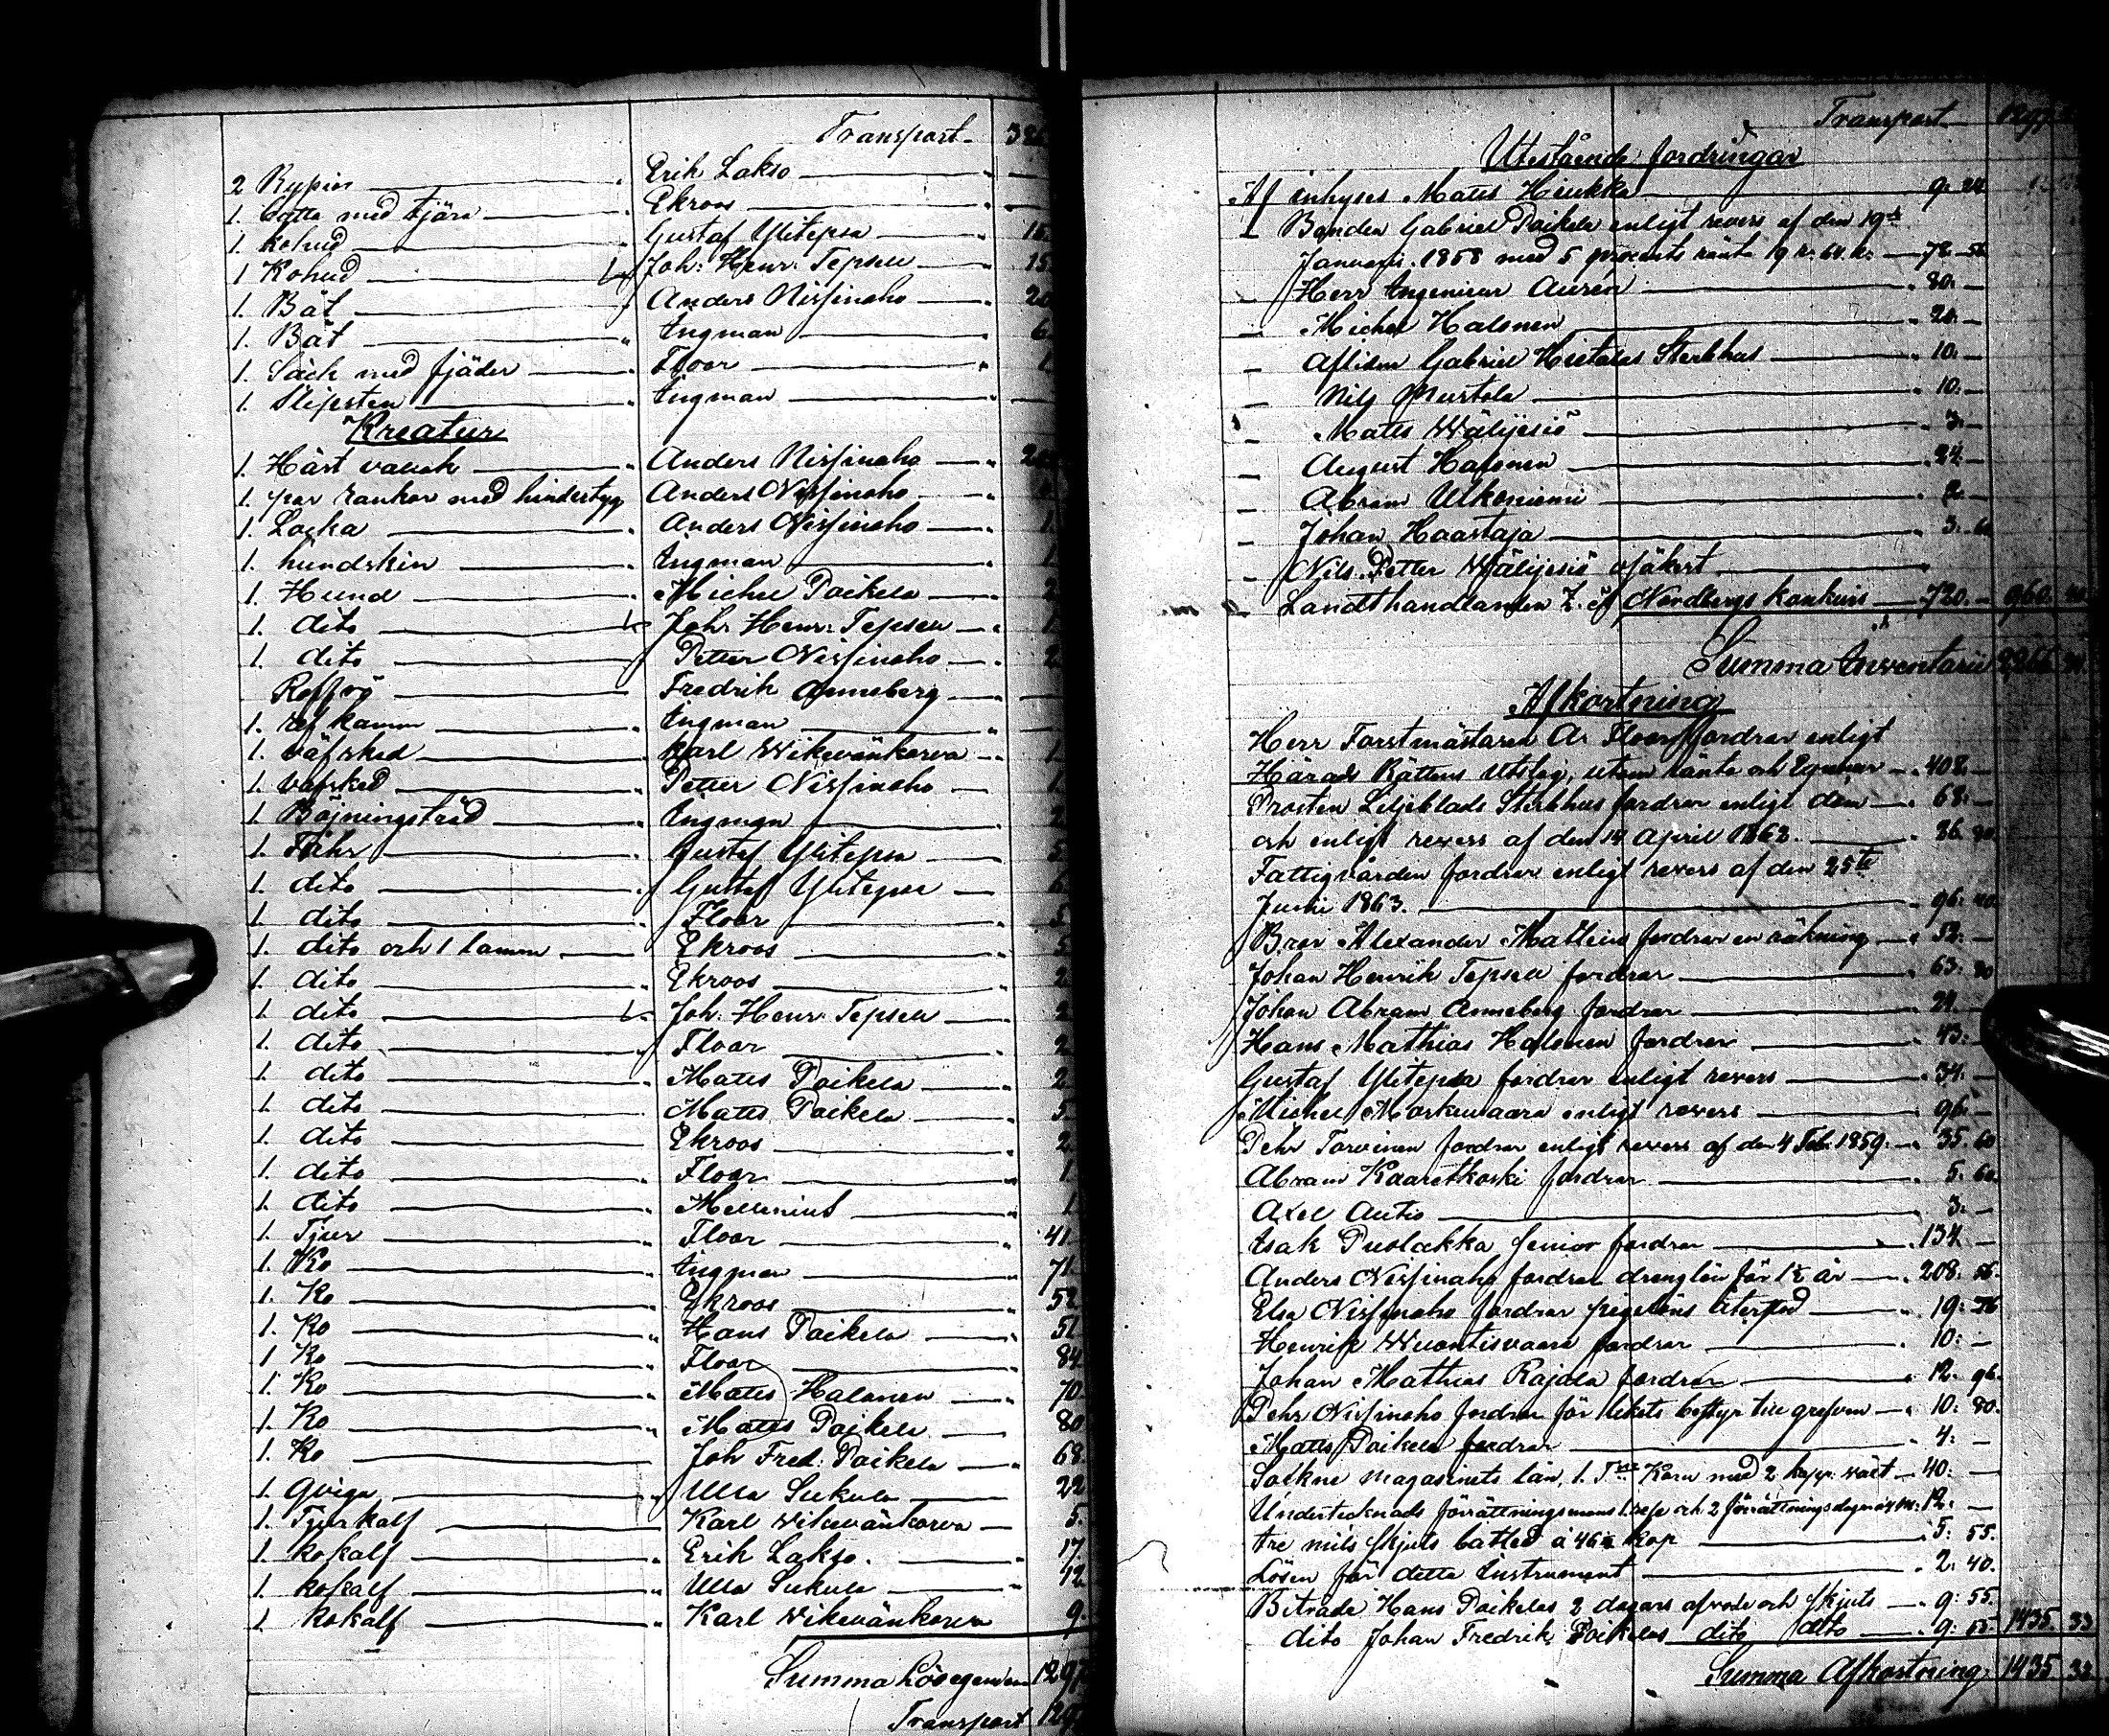 Transport
2 Erik Lakso
1. med tjära Ekroos
1. kohud Gustaf Ylitepsa 15
1 Kohud Joh: Henr: Tepsell 15
1. Båt Anders Nissinaho 20
1. Båt Ingman 6
1. Säck med fjäder Floor 1
1. Slipsten Ingman
Kreatur
1. Häst vallack Anders Nissinaho
1. par rankor med hindertyg Anders Nissinaho
1. Locka Anders Nissinaho 1
1. hundskin Ingman 1
1. Hund Michel Paikela 2
1. dito Joh: Henr: Tepsell 1
1. dito Petter Nissinaho 2
Fredrik Anneberg
1. ref kamm Ingman
1. väfsked Karl Wikevänkorva 1
1. väfsked Petter Nissinaho 1
1 Böjningsträd Ingman 2
1. Fåhr Gustaf Ylitepsa 5
1. dito Gustaf Ylitepsa 6
1. dito Floor 5
1. dito och 1 lamm Ekroos 5
1. dito Ekroos 2
1. dito Joh: Henr: Tepsell 2
1. dito Floor 2
1. dito Mats Paikela 2
1. dito Mats Paikela 5
1. dito Ekroos 2
1. dito Floor 1
1. dito Mellenius 1
1. Tjur Floor 41
1. Ko Ingman 71
1. Ko Ekroos 52
1. Ko Hans Paikela 51
1 Ko Floor 84
1. Ko Mats Halonen 70
1. Ko Mats Paikela 80
1. Ko Joh Fred: Paikela 68
1 Qviga Ulla Sukula 22
1. Tjurkalf Karl Wikevänkorva 5.
1. kokalf Erik Lakso. 17
1. kokalf Ulla Sukula 12
1 kokalf Karl Wikevänkorva 9.
Summa Lösegendom 1297
Transport 1297
Transport 1297
Utestående fordringar
Af inhyses Mats Hiukka 9. 24
Bonden Gabriel Paikela enligt revers af den 19de
Januarii 1858 med 5 procents ränta 19 r. 64 k. 78. 56
Herr Ingeniör Aurén 80.
Michel Halonen 20.
Aflidne Gabriel Hietalas Sterbhus 10.
Nils Mustola 10.
Mats Wälijesiö 3.
August Halonen 24.
Abram Ulkoniemi 2.
Johan Haastaja 3. 60
Nils Petter Wälijesiö osäkert
Landthandlanden Z. Nordbergs konkurs 720. 960. 40
Summa Inventarii
Afkortning
Herr Forstmästaren A: Floor fordrar enligt
Härads Rättens Utslag, utom ränta och 408.
Prosten Liljeblads Sterbhus fordrar enligt dom 68.
och enligt revers af den 14 April 1862. 26. 80
Fattigvården fordrar enligt revers af den 25te
Junii 1863. 96. 40
Bror Alexander Mattein fordrar en räkning 52.
Johan Henrik Tepsell fordrar 63. 80
Johan Abram Anneberg fordrar 21.
Hans Mathias Halonen fordrar 43.
Gustaf Ylitepsa fordrar enligt revers 34.
Michel Moskuvaara enligt revers 96.
Pehr Tarvinen fordrar enligt revers af den 4 Feb. 1859. 35. 60
Abram Kaaretkoski fordrar 5. 60
Axel Autio 3.
Isak Puolakka Senior fordrar 134.
Anders Nissinaho fordrar drenglön för 1½ år 208. 56.
Elsa Nissinaho fordrar pigelöns återstod 19: 76
Henrik Wuontisvaara fordrar 10:
Johan Mathias Rajala fordrar 12. 96.
Pehr Nissinaho fordrar för likets bestyr till grafven 10: 80.
Mats Paikela fordrar 4.
Sockne magasinets lån, 1. Korn med 2 kapp. växt 40:
Undertecknads förrättningsmans 1. resa och 2 förrättningsdagar 12.
tre mils skjuts båtled á 46¼ kop 5: 55.
Lösen för detta Instrument 2: 40.
Biträde Hans Paikelas 2 dagars och skjuts 9: 55.
dito Johan Fredrik Paikelas dito dito 9: 55. 1435. 33
Summa Afkortning 1435 33